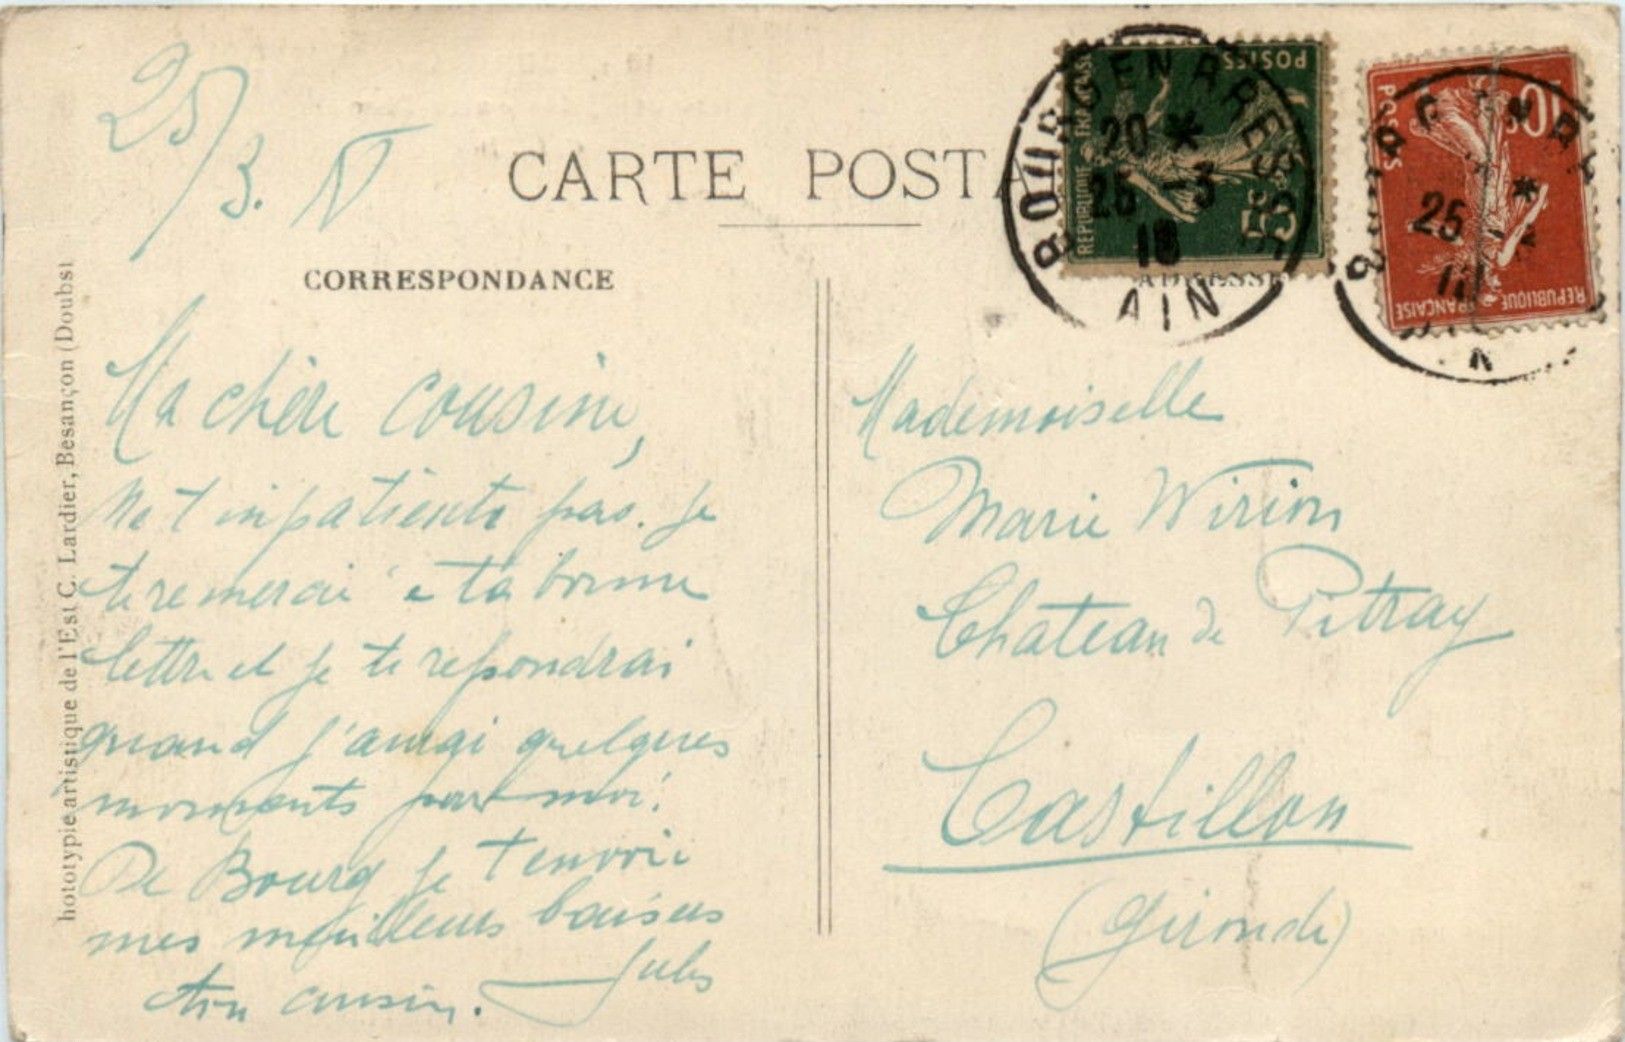 25/3. 18
CARTE POSTA
CORRESPONDANCE
ADRESSE
Ma chère cousine,
Ne t'inpatiente pas. Je
te remercie de ta bonne
lettre et je te repondrai
quand j'aurai quelques
moments pour moi.
De Bourg je t'envoie
mes meilleurs baisers
ton cousin. Jules
Mademoiselle
Marie Wirion
Chateau de Pitray
Castillon
(Gironde)
hototypie artistique de l'Est C. Lardier, Besançon (Doubs)
POSTES
REPUBLIQUE FRANÇAISE
5c
BOURG EN BRESSE
20 *
25 -3
18
AIN
POSTES
10c
REPUBLIQUE FRANÇAISE
25